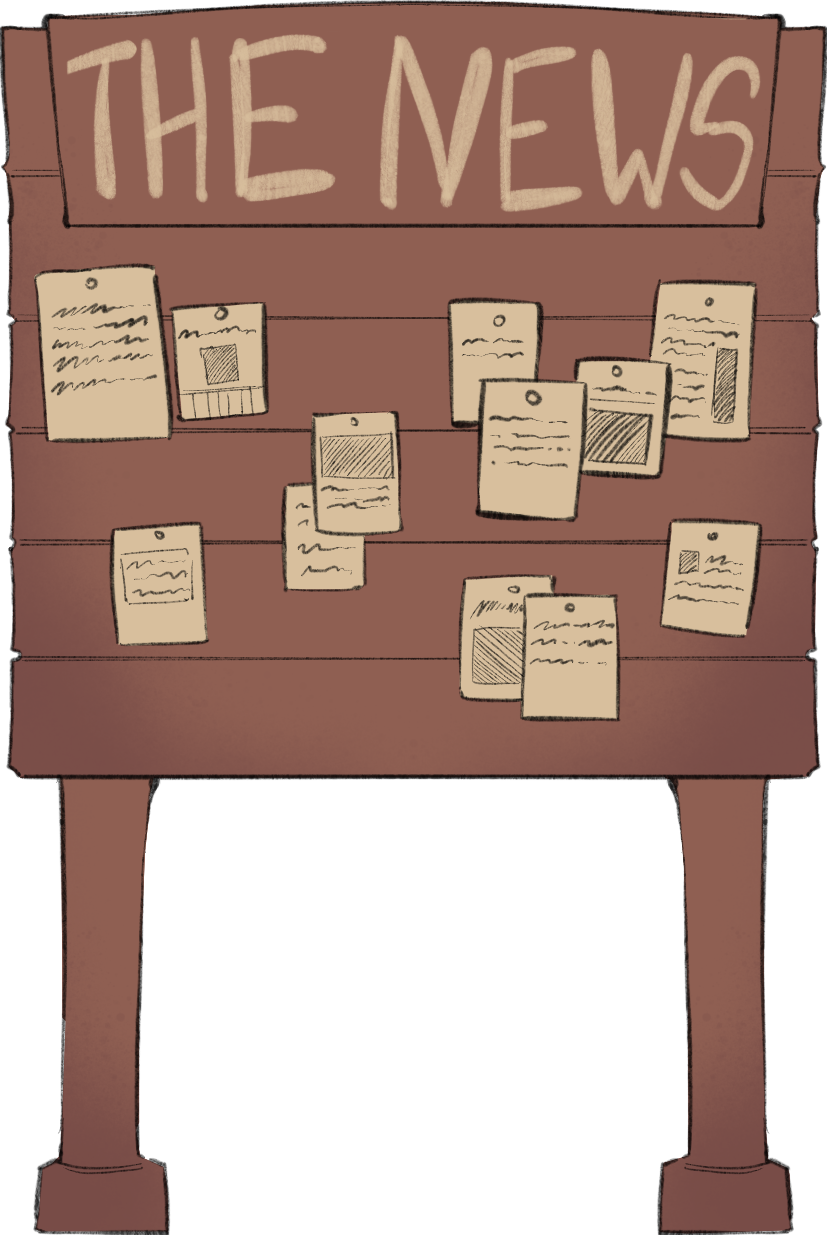 THE NEWS